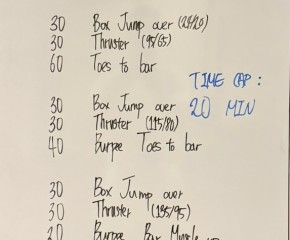 30 Box Jump over (24/20)
30 Thruster (95/65)
60 Toes to bar
TIME CAP :
20 MIN
30 Box Jump over
30 Thruster (115/80)
40 Burpee Toes to bar
30 Box Jump over
30 Thruster (135/95)
20 Burpee Bar Muscle